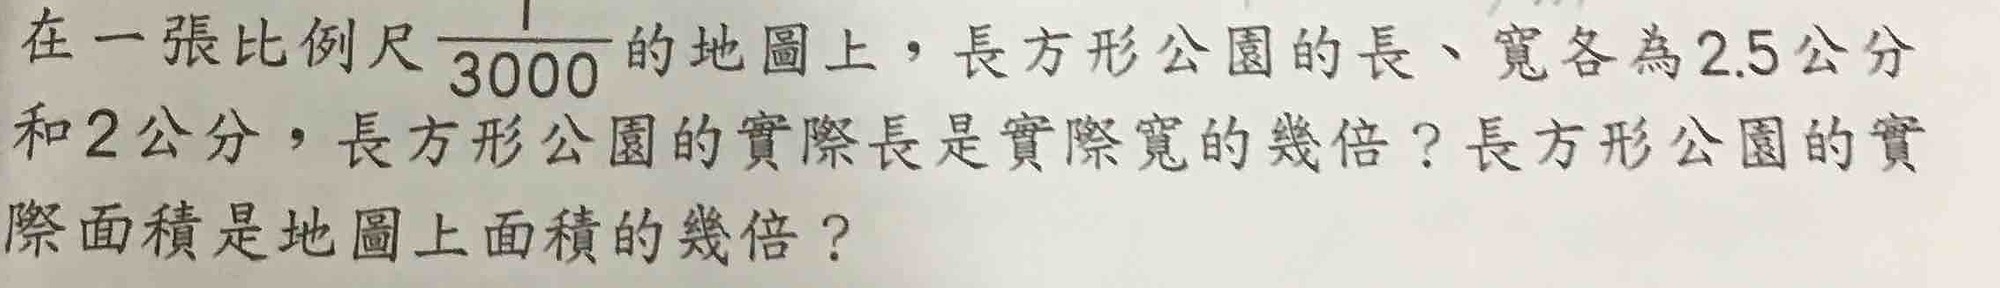 在一張比例尺1/3000的地圖上，長方形公園的長、寬各為2.5公分
和2公分，長方形公園的實際長是實際寬的幾倍？長方形公園的實
際面積是地圖上面積的幾倍？